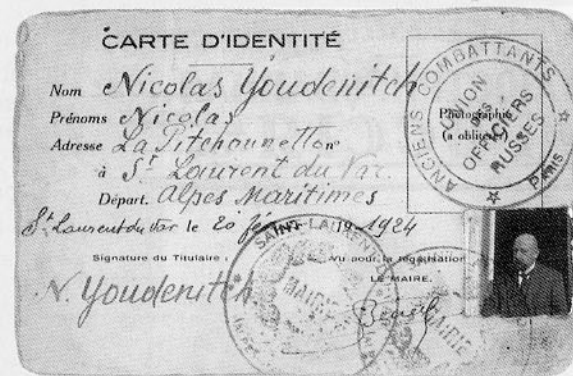 CARTE D'IDENTITÉ
Nom Nicolas Youdenitch
Prénoms Nicolas
Adresse La Pitchounette
à St Laurent du Var.
Départ. Alpes Maritimes
St Laurent du Var le 20 19 1924
Signature du Titulaire :
Vu pour la légalisation
LE MAIRE.
N. Youdenitch
Photographie
(a oblitérer)
ANCIENS COMBATTANTS
PARIS
UNION
DES
OFFICIERS
RUSSES
SAINT-LAURENT
MAIRIE
MAIRIE